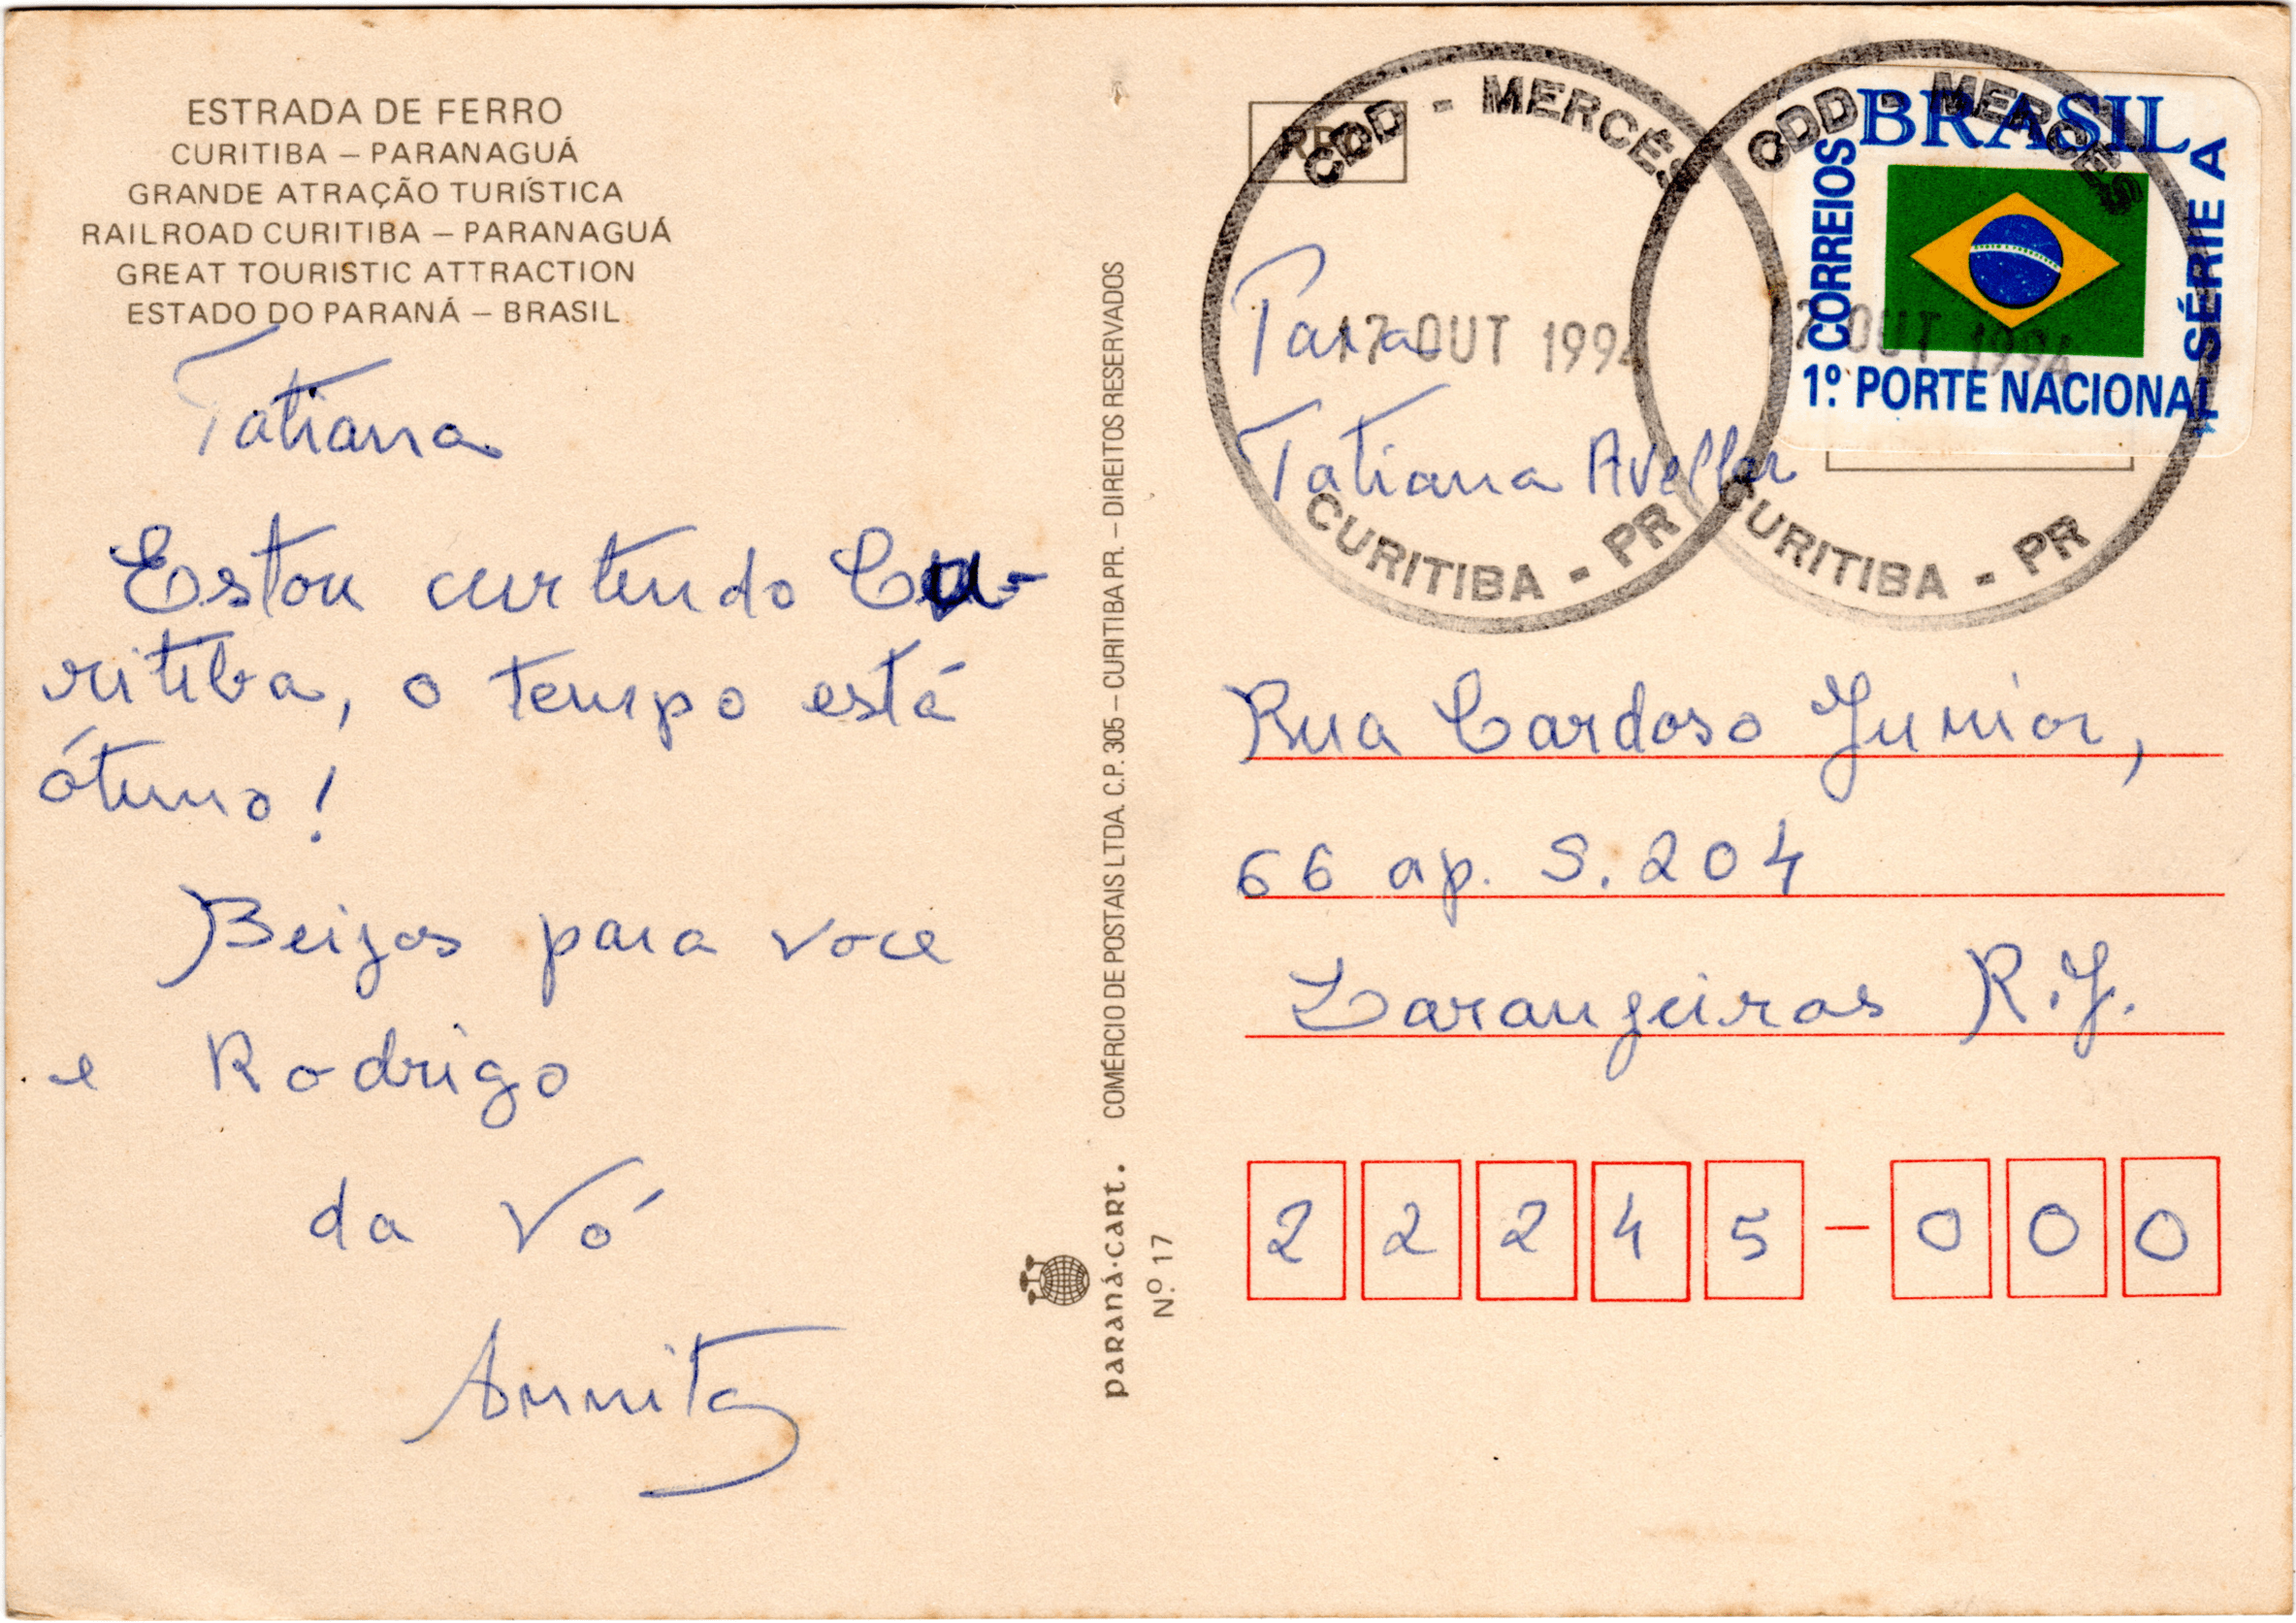 ESTRADA DE FERRO
CURITIBA – PARANAGUÁ
GRANDE ATRAÇÃO TURÍSTICA
RAILROAD CURITIBA – PARANAGUÁ
GREAT TOURISTIC ATTRACTION
ESTADO DO PARANÁ – BRASIL
Tatiana
Estou curtindo Cu-
ritiba, o tempo está
ótimo!
Beijos para voce
e Rodrigo
da Vó
Annita
COMÉRCIO DE POSTAIS LTDA. C.P. 305 – CURITIBA PR. – DIREITOS RESERVADOS
paraná·cart.
N.º 17
CDD - MERCÊS
17 OUT 1994
CURITIBA - PR
CDD - MERCÊS
17 OUT 1994
CURITIBA - PR
BRASIL
CORREIOS
SÉRIE A
1º PORTE NACIONAL
Para
Tatiana Avellar
Rua Cardoso Junior,
66 ap. S. 204
Laranjeiras R.J.
22245-000